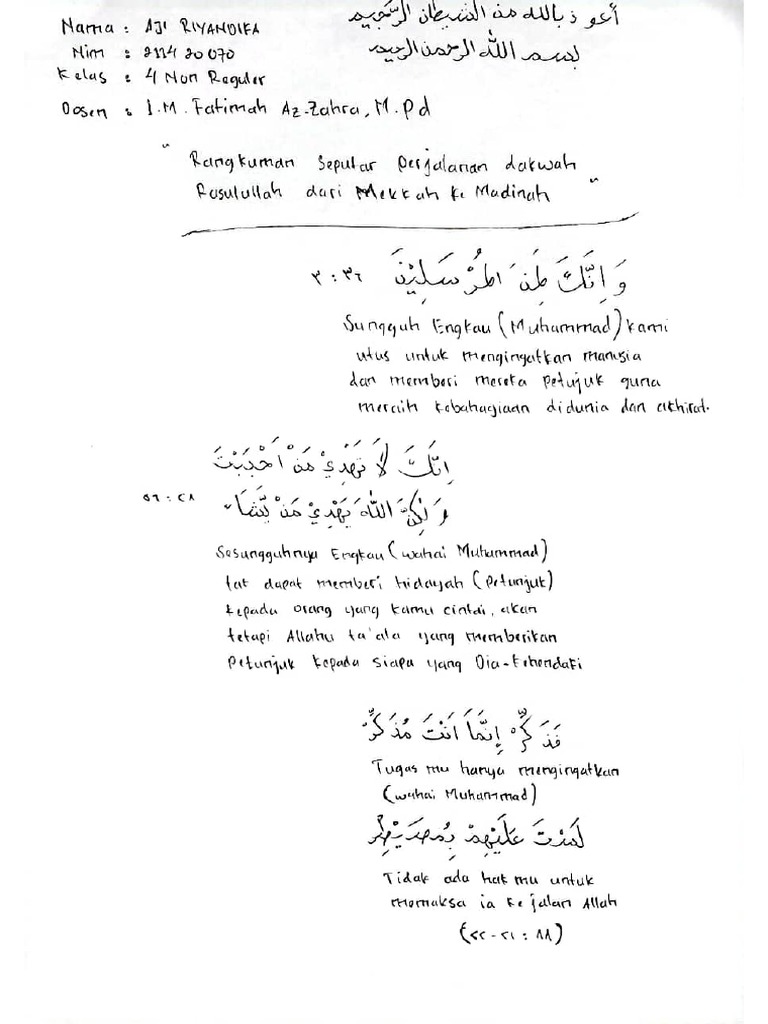 Nama : AJI RIYANDIKA
Nim : 211420070
Kelas : 4 Non Reguler
Dosen : I.M. Fatimah Az-Zahra, M.Pd
أعوذ بالله من الشيطان الرجيم
بسم الله الرحمن الرحيم
" Rangkuman Seputar perjalanan dakwah
Rasulullah dari Mekkah ke Madinah "
وَاِنَّكَ لَمِنَ الْمُرْسَلِيْنَ ٣٦ : ٣
Sungguh Engkau (Muhammad) kami
utus untuk mengingatkan manusia
dan memberi mereka petujuk guna
meraih kebahagiaan didunia dan akhirat.
اِنَّكَ لَا تَهْدِيْ مَنْ اَحْبَبْتَ
وَلٰكِنَّ اللّٰهَ يَهْدِيْ مَنْ يَّشَاۤءُ ٢٨ : ٥٦
Sesungguhnya Engkau (wahai Muhammad)
tak dapat memberi hidayah (petunjuk)
kepada orang yang kamu cintai, akan
tetapi Allahu ta'ala yang memberikan
petunjuk kepada siapa yang Dia-kehendaki
فَذَكِّرْ اِنَّمَا اَنْتَ مُذَكِّرٌ
Tugas mu hanya mengingatkan
(wahai Muhammad)
لَسْتَ عَلَيْهِمْ بِمُصَيْطِرٍ
Tidak ada hak mu untuk
memaksa ia ke jalan Allah
(٨٨ : ٢١ - ٢٢)